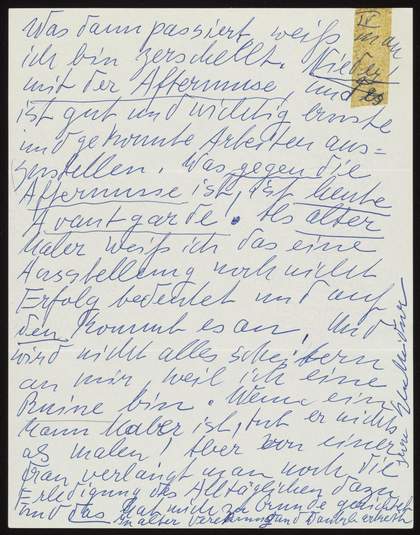 IV
Was dann passiert weiß man
ich bin zerschellt. Nieder
mit der Aftermuse, und es
ist gut und wichtig ernste
und gekonnte Arbeiten aus=
zustellen. Was gegen die
Aftermusse ist, ist heute
Avantgarde. Als alter
Maler weiß ich das eine
Ausstellung noch nicht
Erfolg bedeutet und auf
den kommt es an. Und
wird nicht alles scheitern
an mir, weil ich eine
Ruine bin. Wenn ein
Mann Maler ist, tut er nichts
als malen! Aber von einer
Frau verlangt man noch die
Erledigung des Alltäglichen dazu
und das hat mich zu Grunde gerichtet
In alter Verehrung und Dankbarkeit
Ihre